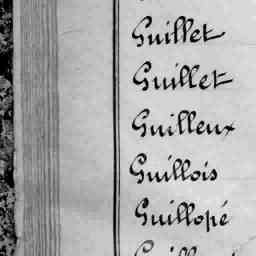 Guillet
Guillet
Guilleux
Guillois
Guillopé